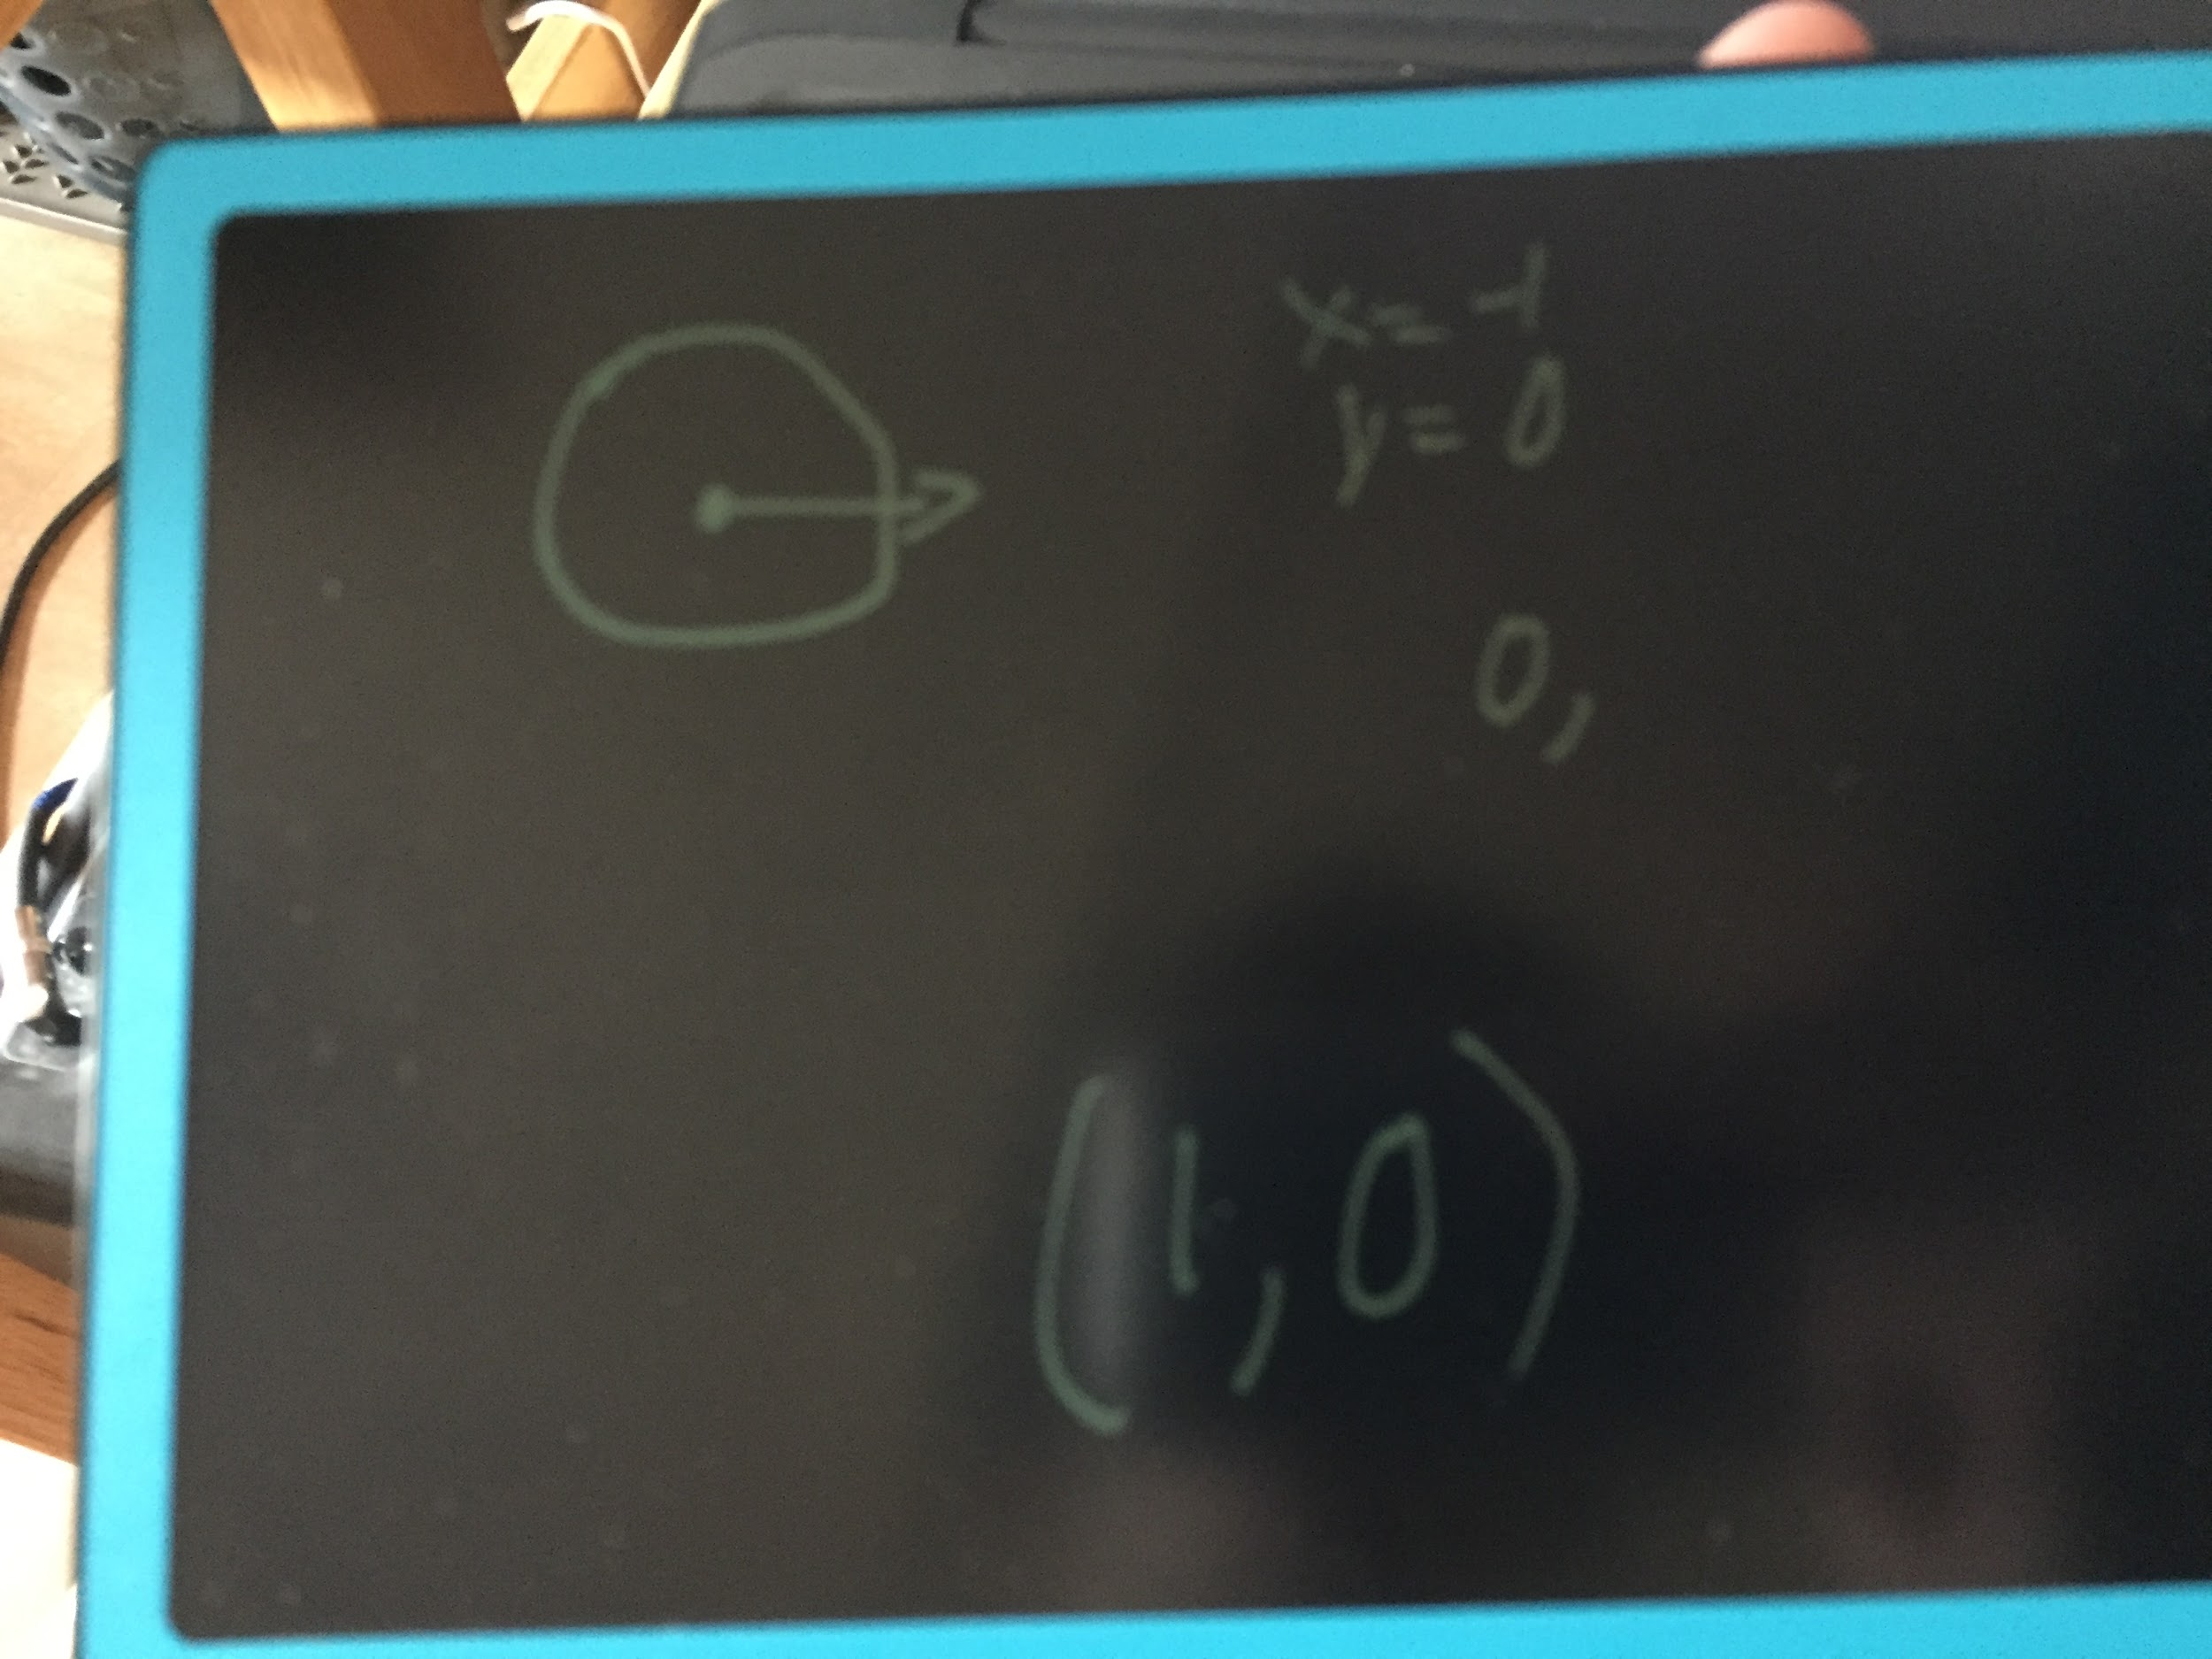 x = -1
y = 0
0,
(1, 0)